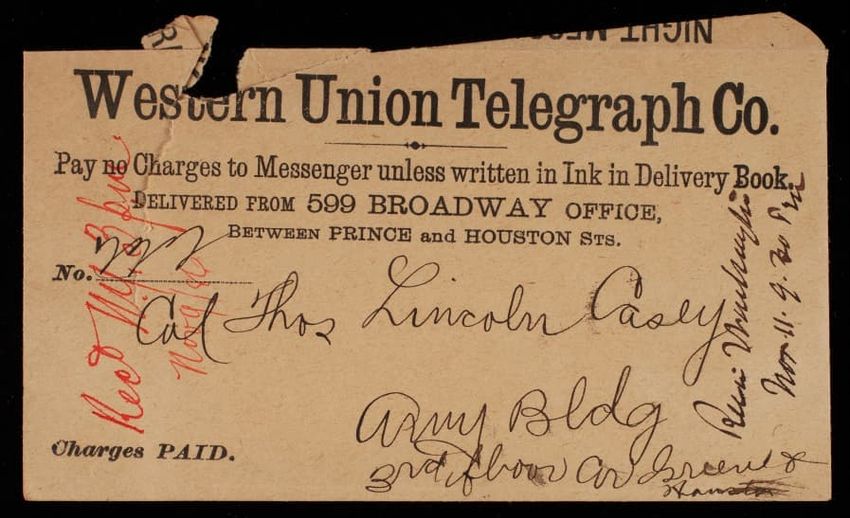 NIGHT MES
Western Union Telegraph Co.
Pay no Charges to Messenger unless written in Ink in Delivery Book.
DELIVERED FROM 599 BROADWAY OFFICE,
BETWEEN PRINCE and HOUSTON STS.
No.
Col Thos Lincoln Casey
Army Bldg
3rd floor Cor Greene &
Houston
Charges PAID.
Recd
Nov 11. 9.20 P m